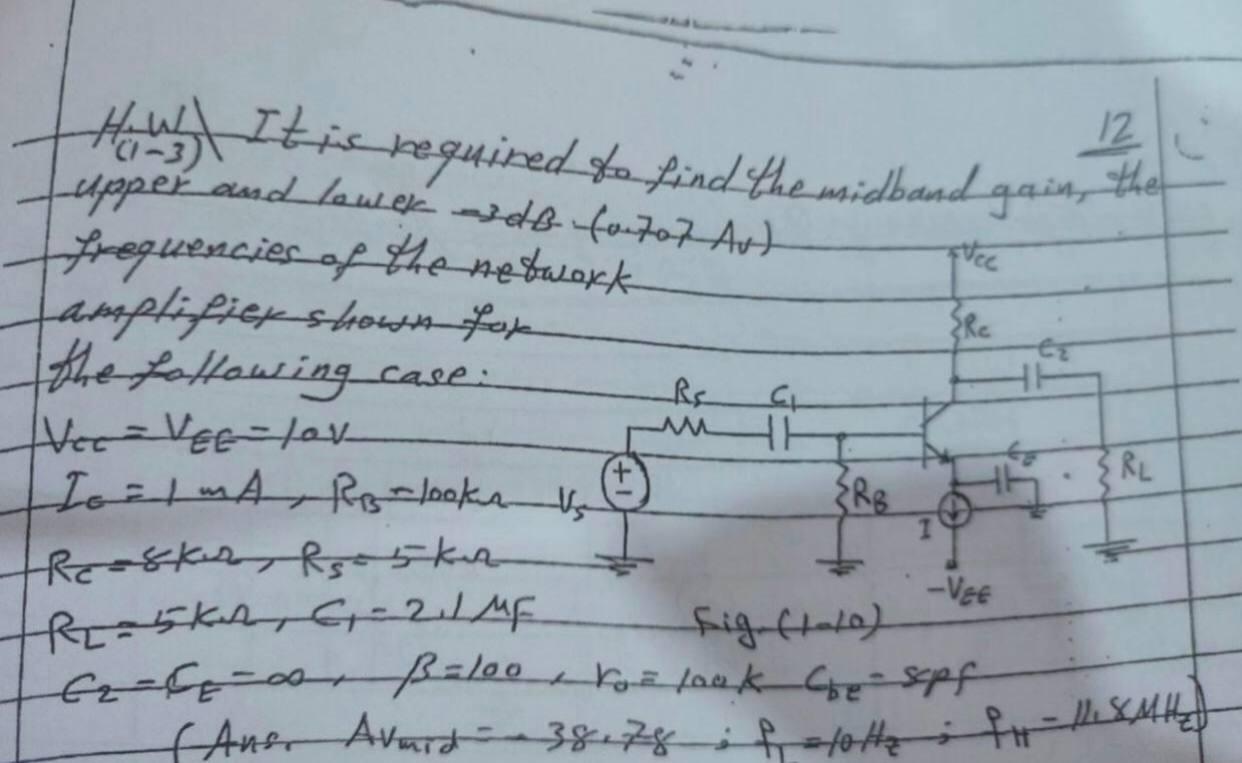 12
H.W\ It is required to find the midband gain, the
(1-3)
upper and lower -3dB (0.707 Av)
frequencies of the network
amplifier shown for
the following case:
Vcc = VEE = 10V
Ic = 1mA, RB = 100kΩ
Rc = 8kΩ, Rs = 5kΩ
RL = 5kΩ, C1 = 2.1 MF
C2 = CE = ∞, β = 100, ro = 100k Cbe = 5pf
(Ans. Avmid = -38.78 ; fL = 10Hz ; fH = 11.8MHz)
Vcc
Rc
C2
Rs
C1
CE
RL
Vs
RB
I
-VEE
Fig. (1-10)